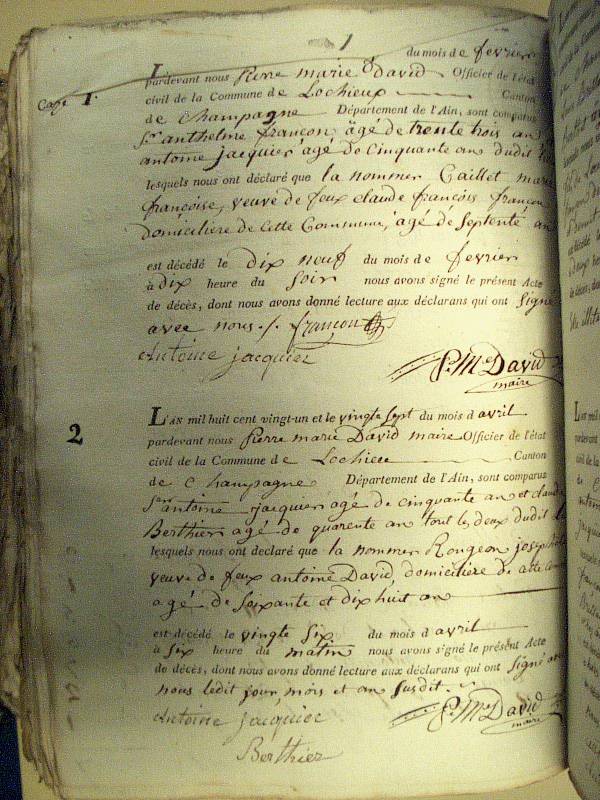 1
du mois de fevrier
pardevant nous pierre marie David Officier de l'état
Cahe 1.
civil de la Commune de Lochieux Canton
de Champagne Département de l'Ain, sont comparus
Sr. anthelme françon, âgé de trente trois an
antoine jacquier âgé de cinquante an dudit
lesquels nous ont déclaré que la nommer Caillet marie
françoise, veuve de feux claude françois françon
domiciliere de Cette Commune, agé de Septente an
est décédé le dix neuf du mois de fevrier
à dix heure du Soir nous avons signé le présent Acte
de décès, dont nous avons donné lecture aux déclarans qui ont Signé
avec nous ./. françon
Antoine jacquier
P. Me David
maire
2
L'AN mil huit cent vingt-un et le vingte Sept du mois d avril
pardevant nous Pierre marie David maire Officier de l'état
civil de la Commune de Lochieu Canton
de Champagne Département de l'Ain, sont comparus
Srs. antoine jacquier agé de cinquante an et claude
Berthier agé de quarente an tout les deux dudit
lesquels nous ont déclaré que la nommer Rongeon joseph
veuve de feux antoine David, domiciliere de
agé de Soixante et dix huit an
est décédé le vingte Six du mois d avril
à Six heure du matin nous avons signé le présent Acte
de décès, dont nous avons donné lecture aux déclarans qui ont Signé
nous ledit jour, mois et an Susdit.
Antoine jacquier
P. Me David
maire
Berthier
L'AN mil